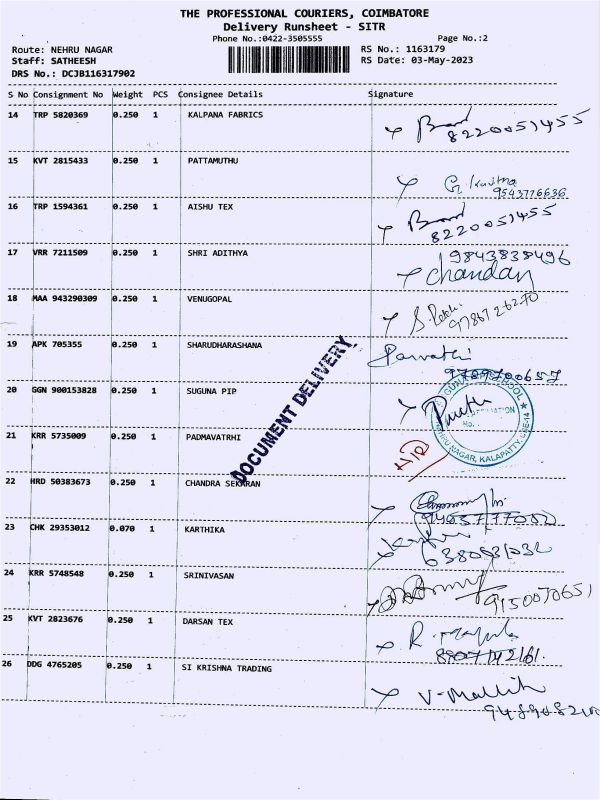 THE PROFESSIONAL COURIERS, COIMBATORE
Delivery Runsheet - SITR
Phone No.:0422-3505555 Page No.:2
Route: NEHRU NAGAR RS No.: 1163179
Staff: SATHEESH RS Date: 03-May-2023
DRS No.: DCJB116317902
S No Consignment No Weight PCS Consignee Details Signature
14 TRP 5820369 0.250 1 KALPANA FABRICS
8220051455
15 KVT 2815433 0.250 1 PATTAMUTHU
9543776636
16 TRP 1594361 0.250 1 AISHU TEX
8220051455
17 VRR 7211509 0.250 1 SHRI ADITHYA 9843838496
Chandan
18 MAA 943290309 0.250 1 VENUGOPAL
9786726270
19 APK 705355 0.250 1 SHARUDHARASHANA Parvathi
9789700657
20 GGN 900153828 0.250 1 SUGUNA PIP
NEHRU NAGAR, KALAPATTY, CBE-14
21 KRR 5735009 0.250 1 PADMAVATRHI
DOCUMENT DELIVERY
22 HRD 50383673 0.250 1 CHANDRA SEKARAN
23 CHK 29353012 0.070 1 KARTHIKA
24 KRR 5748548 0.250 1 SRINIVASAN
9150070651
25 KVT 2823676 0.250 1 DARSAN TEX
8907142161.
26 DDG 4765205 0.250 1 SI KRISHNA TRADING
V-Mallik